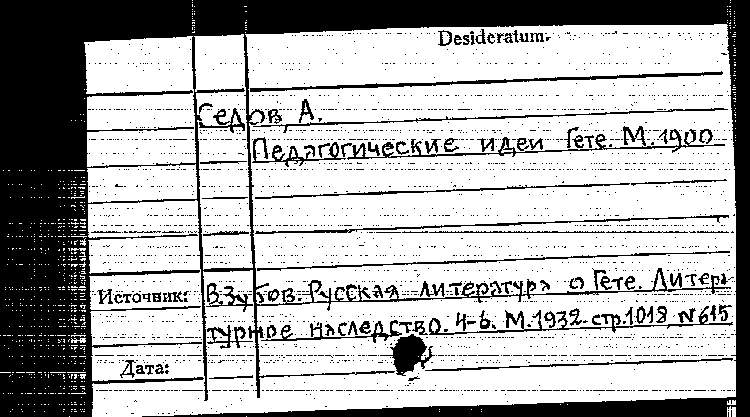 Desideratum.
Седов, А.
Педагогические идеи Гете. М. 1900
Источник: В.Зубов. Русская литература о Гете. Литера
турное наследство. 4-6. М.1932. стр.1018, N 615
Дата: